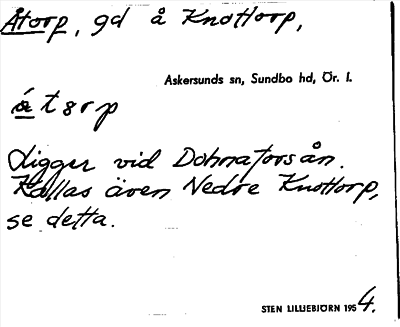 Åtorp, gd å Knottorp,
Askersunds sn, Sundbo hd, Ör. l.
å t o r p
Ligger vid Dohnaforsån.
Kallas även Nedre Knottorp,
se detta.
STEN LILLIEBJÖRN 1954.